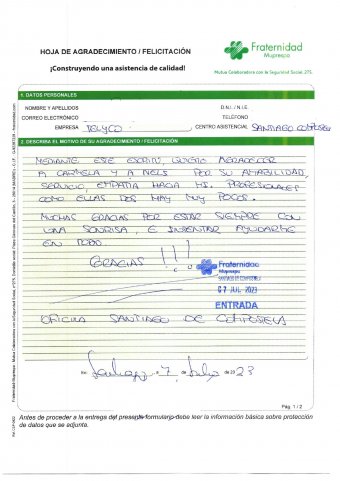 HOJA DE AGRADECIMIENTO / FELICITACIÓN
¡Construyendo una asistencia de calidad!
Fraternidad
Muprespa
Mutua Colaboradora con la Seguridad Social, 275
1. DATOS PERSONALES
NOMBRE Y APELLIDOS
D.N.I. / N.I.E.
CORREO ELECTRÓNICO
TELÉFONO
EMPRESA TELYCO CENTRO ASISTENCIAL SANTIAGO COMPOSTELA
2. DESCRIBA EL MOTIVO DE SU AGRADECIMIENTO / FELICITACIÓN
MEDIANTE ESE ESCRITO, QUIERO AGRADECER
A CARMELA Y A NELS POR SU AMABILIDAD,
SERVICIO, EMPATIA HACIA MI. PROFESIONALES
COMO ELLAS DOS HAY MUY POCOS.
MUCHAS GRACIAS POR ESTAR SIEMPRE CON
UNA SONRISA, E INTENTAR AYUDARME
EN TODO.
GRACIAS !!!
Fraternidad
Muprespa
SANTIAGO DE COMPOSTELA
07 JUL 2023
ENTRADA
OFICINA SANTIAGO DE COMPOSTELA
En Santiago a 7 de Julio de 2023
Pág. 1 / 2
Antes de proceder a la entrega del presente formulario debe leer la información básica sobre protección
de datos que se adjunta.